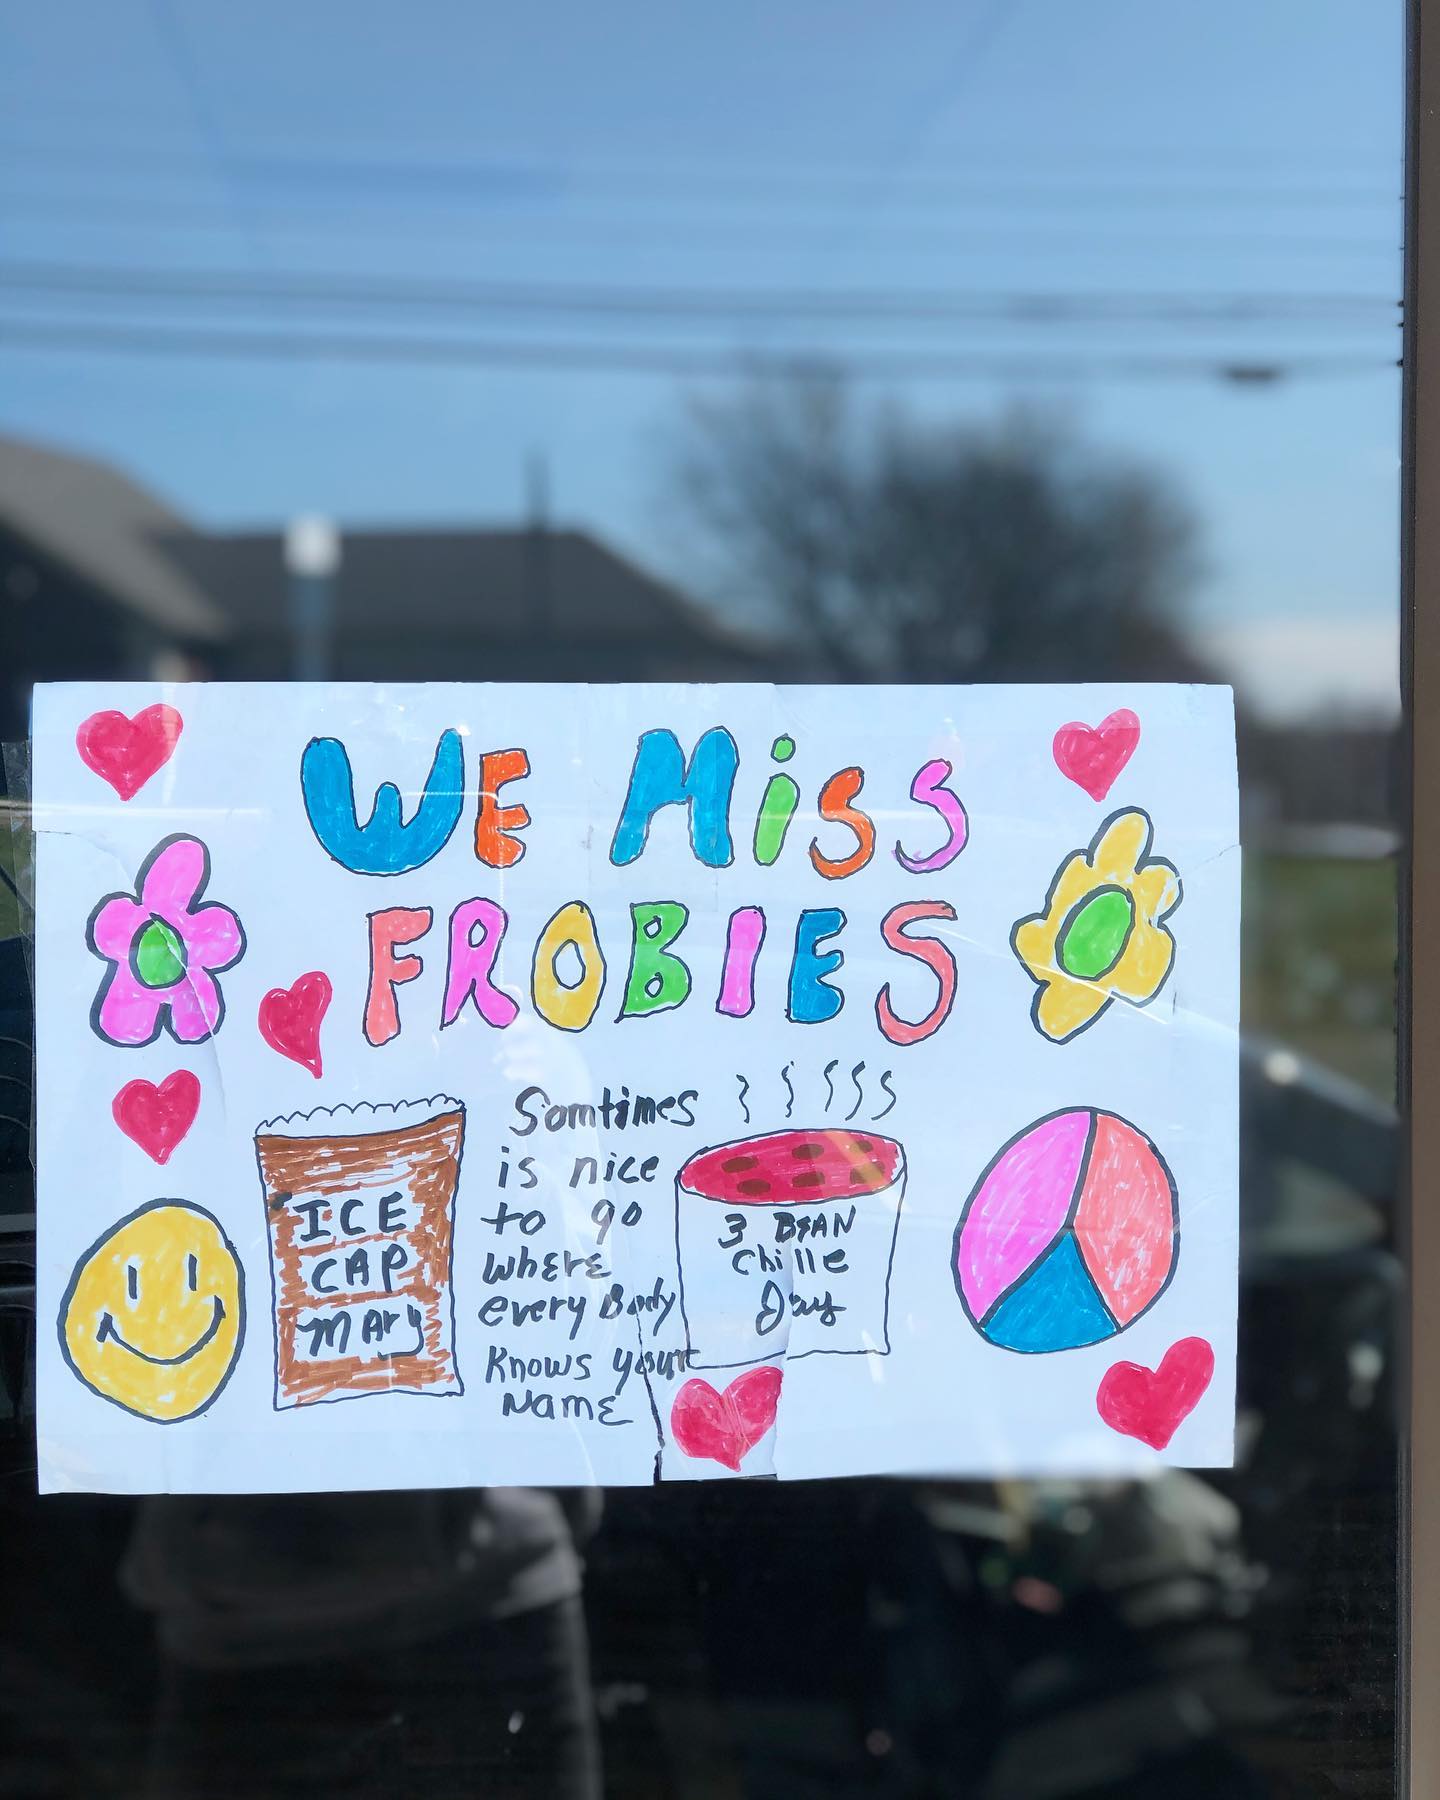 WE MiSS
FROBIES
Somtimes
is nice
to go
where
every Body
Knows your
Name
ICE
CAP
MAry
3 BEAN
chille
Day